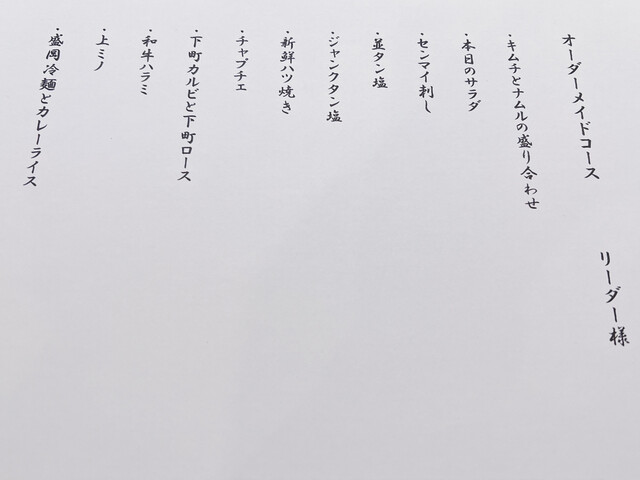 リーダー様
オーダーメイドコース
・キムチとナムルの盛り合わせ
・本日のサラダ
・センマイ刺し
・並タン塩
・ジャンクタン塩
・新鮮ハツ焼き
・チャプチェ
・下町カルビと下町ロース
・和牛ハラミ
・上ミノ
・盛岡冷麺とカレーライス